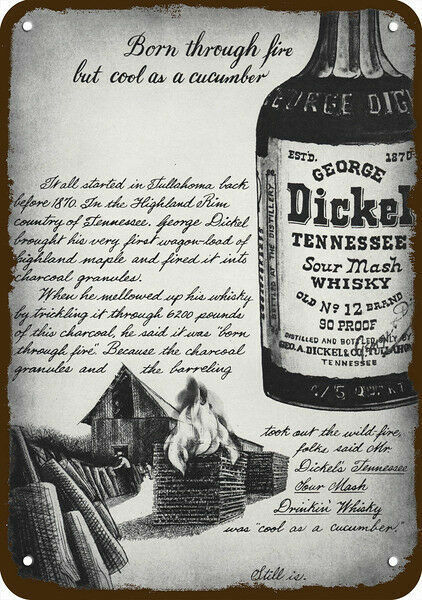 Born through fire
but cool as a cucumber
It all started in Tullahoma back
before 1870. In the Highland Rim
country of Tennessee. George Dickel
brought his very first wagon-load of
highland maple and fired it into
charcoal granules.
When he mellowed up his whisky
by trickling it through 6200 pounds
of this charcoal, he said it was "born
through fire". Because the charcoal
granules and the barreling
took out the wild-fire,
folks said Mr
Dickel's Tennessee
Sour Mash
Drinkin' Whisky
was "cool as a cucumber."
Still is.
GEORGE DICK
ESTD. 1870
GEORGE
Dickel
TENNESSEE
Sour Mash
WHISKY
OLD No 12 BRAND
90 PROOF
DISTILLED AND BOTTLED ONLY BY
GEO. A. DICKEL & CO. TULLAHOMA
TENNESSEE
BOTTLED AT THE DISTILLERY
4/5 QUART